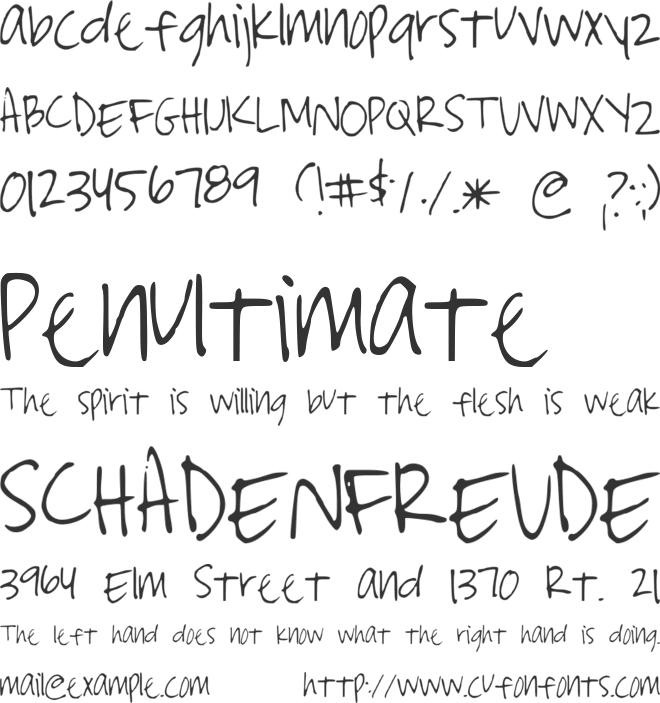 abcdefghijklmnopqrstuvwxyz
ABCDEFGHIJKLMNOPQRSTUVWXYZ
0123456789 (!#$:/./.* @ ?:;)
Penultimate
The spirit is willing but the flesh is weak
SCHADENFREUDE
3964 Elm Street and 1370 Rt. 21
The left hand does not know what the right hand is doing.
mail@example.com http://www.cufonfonts.com